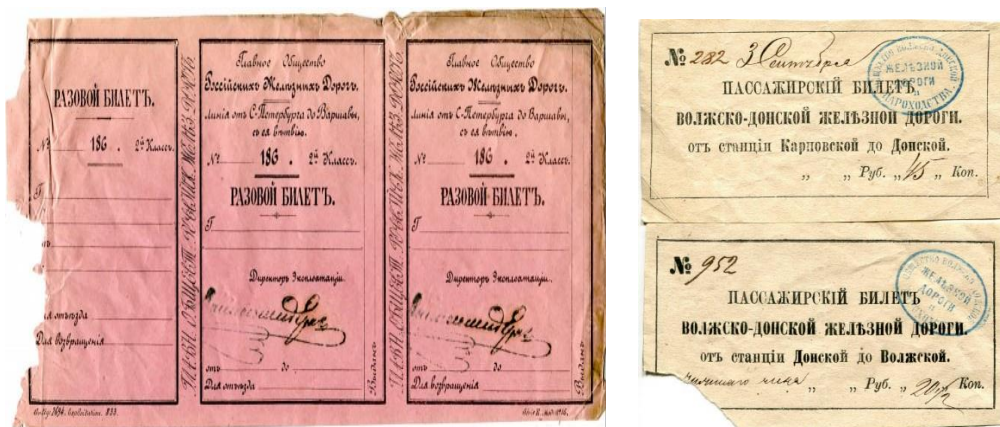 РАЗОВОЙ БИЛЕТЪ.
№ 186 . 2й Классъ.
Г
Для возвращенія
Главное Общество
Россійскихъ Желѣзныхъ Дорогъ.
линія отъ С-Петербурга до Варшавы,
съ ея вѣтвію.
№ 186 . 2й Классъ.
РАЗОВОЙ БИЛЕТЪ.
Г
Директоръ Эксплоатаціи.
отъ до
Для отъѣзда
Выданъ
Главное Общество
Россійскихъ Желѣзныхъ Дорогъ.
линія отъ С-Петербурга до Варшавы,
съ ея вѣтвію.
№ 186 . 2й Классъ.
РАЗОВОЙ БИЛЕТЪ.
Г
Директоръ Эксплоатаціи.
отъ до
Для возвращенія
Выданъ
№ 282 3 Сентября
ПАССАЖИРСКІЙ БИЛЕТЪ
ВОЛЖСКО-ДОНСКОЙ ЖЕЛѢЗНОЙ ДОРОГИ.
отъ станціи Карповской до Донской.
„ „ Руб. „ 45 „ Коп.
ЖЕЛѢЗНОЙ
ДОРОГИ
И
ПАРОХОДСТВА
№ 952
ПАССАЖИРСКІЙ БИЛЕТЪ
ВОЛЖСКО-ДОНСКОЙ ЖЕЛѢЗНОЙ ДОРОГИ.
отъ станціи Донской до Волжской.
„ „ Руб. „ Коп.
ЖЕЛѢЗНОЙ
ДОРОГИ
И